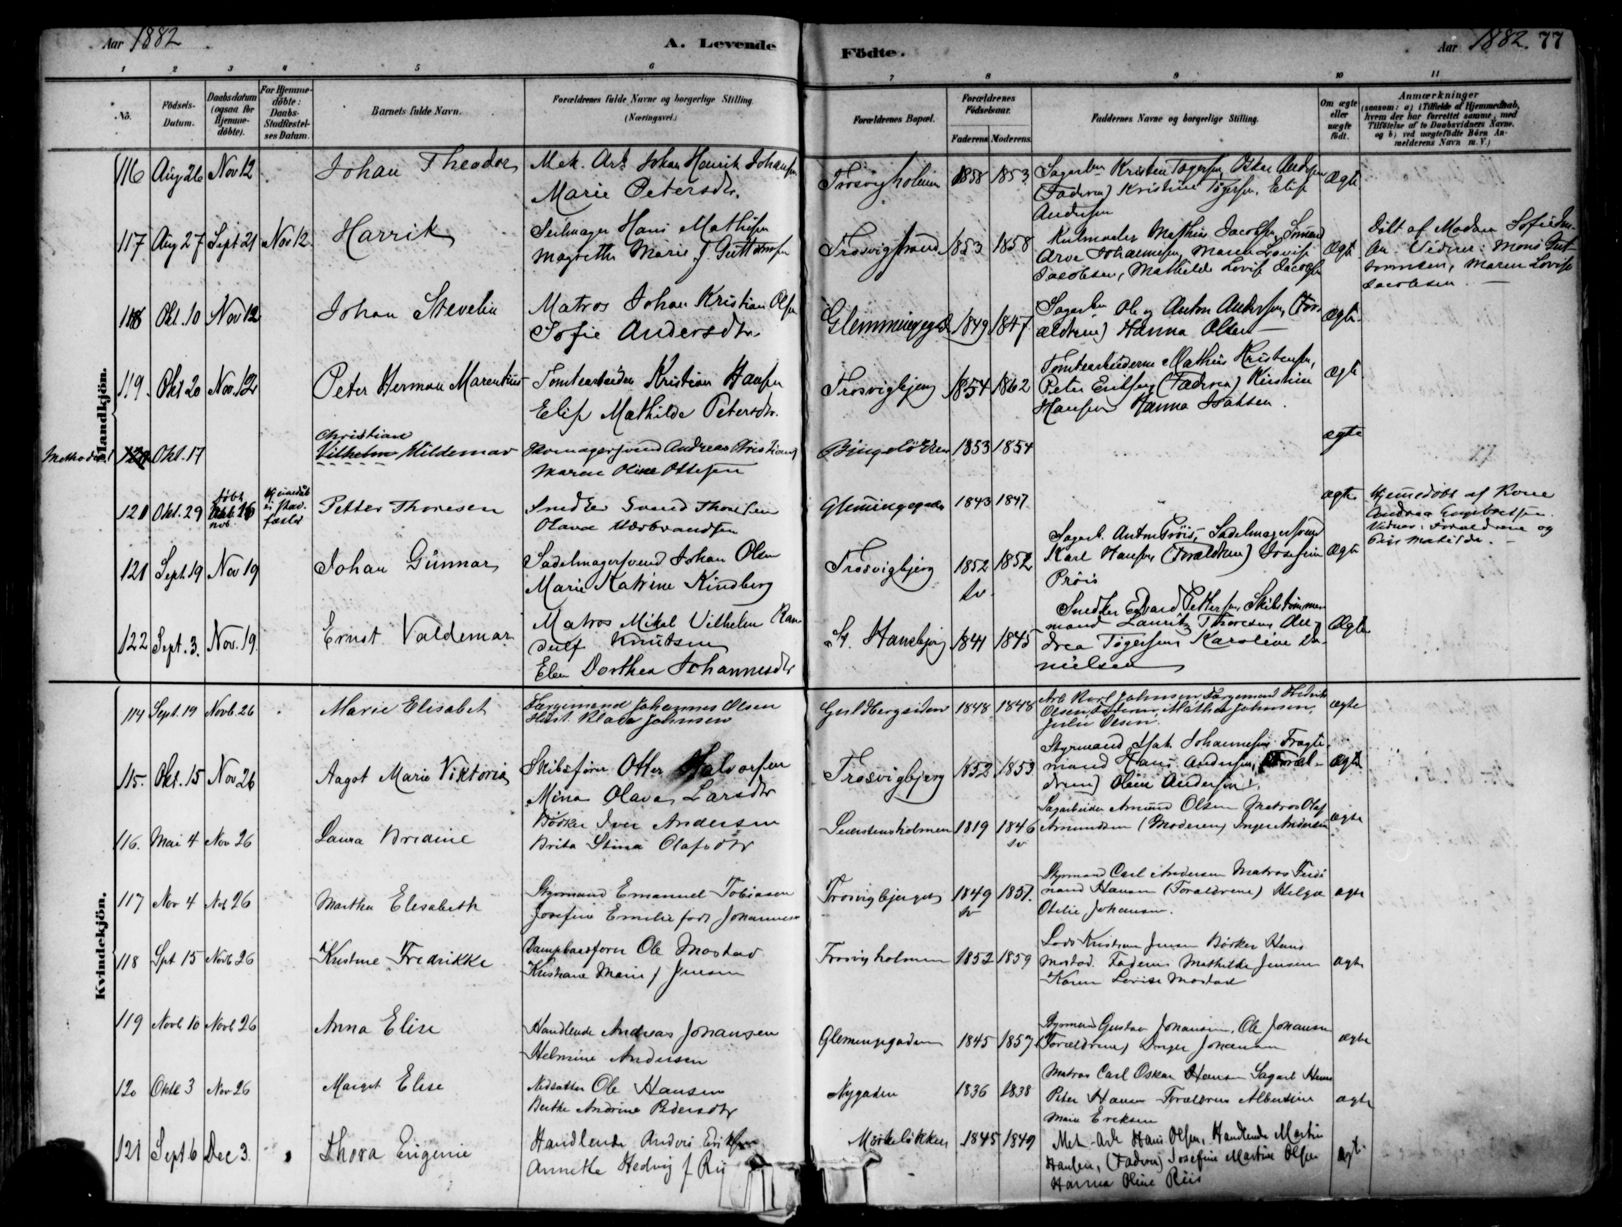 Aar 1882
A. Levende
Födte.
Aar 1882. 77
1 2 3 4 5 6 7 8 9 10 11
No.
Födsels-
Datum.
Daabsdatum
(ogsaa for
Hjemme-
döbte).
For Hjemme-
döbte:
Daabs-
Stadfæstel-
ses Datum.
Barnets fulde Navn.
Forældrenes fulde Navne og borgerlige Stilling.
(Næringsvei.)
Forældrenes Bopæl.
Forældrenes
Födselsaar.
Faderens Moderens.
Faddernes Navne og borgerlige Stilling.
Om ægte
eller
uægte
født.
Anmærkninger
(saasom: a) i Tilfælde af Hjemmedaab,
hvem der har forrettet samme, med
Tilföielse af to Daabsvidners Navne,
og b) ved uægtefödte Börn An-
melderens Navn m. V.)
Mandkjön.
116 Aug 26 Nov 12 Johan Theodor Mek. Arb. Johan Henrik Johansen
Marie Petersdtr. Trosvigholmen 1858 1853 Sagarb. Kristen Tøgersen, Peter Andersen
(Fadren) Kristine Tøgersen, Elise
Andersen ægte
117 Aug 27 Sept 21 Nov 12 Harrik Seilmager Hans Mathisen
Magrethe Marie f. Guttormsen Trosvigstrand 1853 1858 Mathias Jacobsen,
Arve Johannesen, Maren Lovise
Jacobsen, Mathilde Lovise Jacobsen ægte Døbt af Madam Sofie
Vidner: Mons
Maren Lovise
Jacobsen.
118 Okt. 10 Nov 12 Johan Stevelin Matros Johan Kristian Olsen
Sofie Andersdtr. Glemminggd 1849 1847 Sagarb. Ole og Anton Andersen, (For-
ældrene) Hanna Olsen ægte.
119. Okt 20 Nov. 12 Peter Herman Marentius Tomtearbeider Kristian Hansen
Elise Mathilde Petersdtr. Trosvigbjerg 1854 1862 Tomtearbeiderne Mathias Kristensen,
Peter Eriksen (Fadren) Kirstine
Hansen Hanna Isaksen. ægte
Methodist 120 Okt. 17 Christian
Vilhelm Hildemar Skomagersvend Andreas Kristiansen
Maren Oline Ottesen Bingeløkken 1853 1854 ægte
120 Okt. 29 døbt
Nov. 16 Hjemedåb
ei stad-
fæstet Petter Thoresen Smed Evend Thoresen
Olava Herbrandsen Glemingegaden 1843 1847 " ægte Hjemedøbt af Kone
Andrea Engebretsen.
Vidner: Forældrene og
Matilde.
121 Sept 19 Nov 19 Johan Gunnar Sadelmagersvend Johan Olsen
Marie Katrine Kindberg Trosvigbjerg 1852
Sv. 1852 Sagarb. Anton Prøis, Sadelmagersvend
Karl Hansen, (Forældrene) Josefine
Prøis ægte
122 Sept. 3. Nov. 19 Ernst Valdemar Matros Mikal Vilhelm Ran-
dulf Knudsen
Elen Dorthea Johannesdtr St. Hansbjerg 1844 1845 Smed Edvard Pettersen, Skibstømmer-
mand Lauritz Thoresen,
drea Tøgersen, Karoline Da-
nielsen Ægte
Kvindekjön.
114 Sept. 19 Novb. 26 Marie Elisabet Færgemand Johannes Olsen
Hust. Klara Johnsen Guldbergsiden 1848 1848 Arb Karl Johnsen Færgemand Fredrik
Olsen, Faderen, Mathea Johnsen,
Julie Olsen. ægte
115. Okt. 15 Nov 26 Aagot Marie Viktoria Skibsfører Otter Halvorsen
Mina Olava Larsdtr Trosvigbjerg 1852 1853 Styrmand Isak Johannesen, Fragte-
mand Hans Andersen, (Foræl-
drene) Oline Andersen ægte
116. Mai 4 Nov 26 Laura Bredine Bødker Iver Andersen
Brita Stina Olafsdtr Seierstensholmen 1819 1846
Sv Sagarbeider Amund Olsen Matros Olaf
Amundsen (Moderen) Inger Andersen ægte
117 Nov 4 Nov 26 Martha Elisabeth Styrmand Emanuel Tobiasen
Josefine Emilie født Johannesen Trosvigbjerget 1849
Sv 1851 Styrmand Carl Andersen Matros Ferdi-
nand Hansen (Forældrene) Helga
Otelie Johansen. ægte
118 Spt 15 Novb 26 Kristine Fredrikke Dampbaadfører Ole Mostad
Kristiane Marie f Jensen Trosvigholmen 1852 1859 Lods Kristian Jensen Bødker Hans
Mostad. Faderen Mathilde Jensen
Karen Lovise Mostad ægte
119 Novb 10 Novb 26 Anna Elise Handlende Andreas Johansen
Helmine Andersen Glemingegaden 1845 1857 Styrmand Gustav Johansen, Ole Johansen
(Forældrene) Inger Johansen ægte
120 Okt 3 Nov 26 Margot Elise Nedsætter Ole Hansen
Berthe Andrine Pedersdtr Nygaden 1836 1838 Matros Carl Oskar Hansen Sagarb Hans
Peter Hansen Forældrene Albertine
Marie Ericksen ægte
121 Sept 6 Dec 3. Thora Eugenie Handlende Anders Eriksen
Annette Hedvig f. Riis Mørkeløkken 1845 1849 Mek. Arb Hans Olsen, Handlende Martin
Hansen, (Fadren) Josefine Martine Olsen
Hanna Oline Riis ægte.